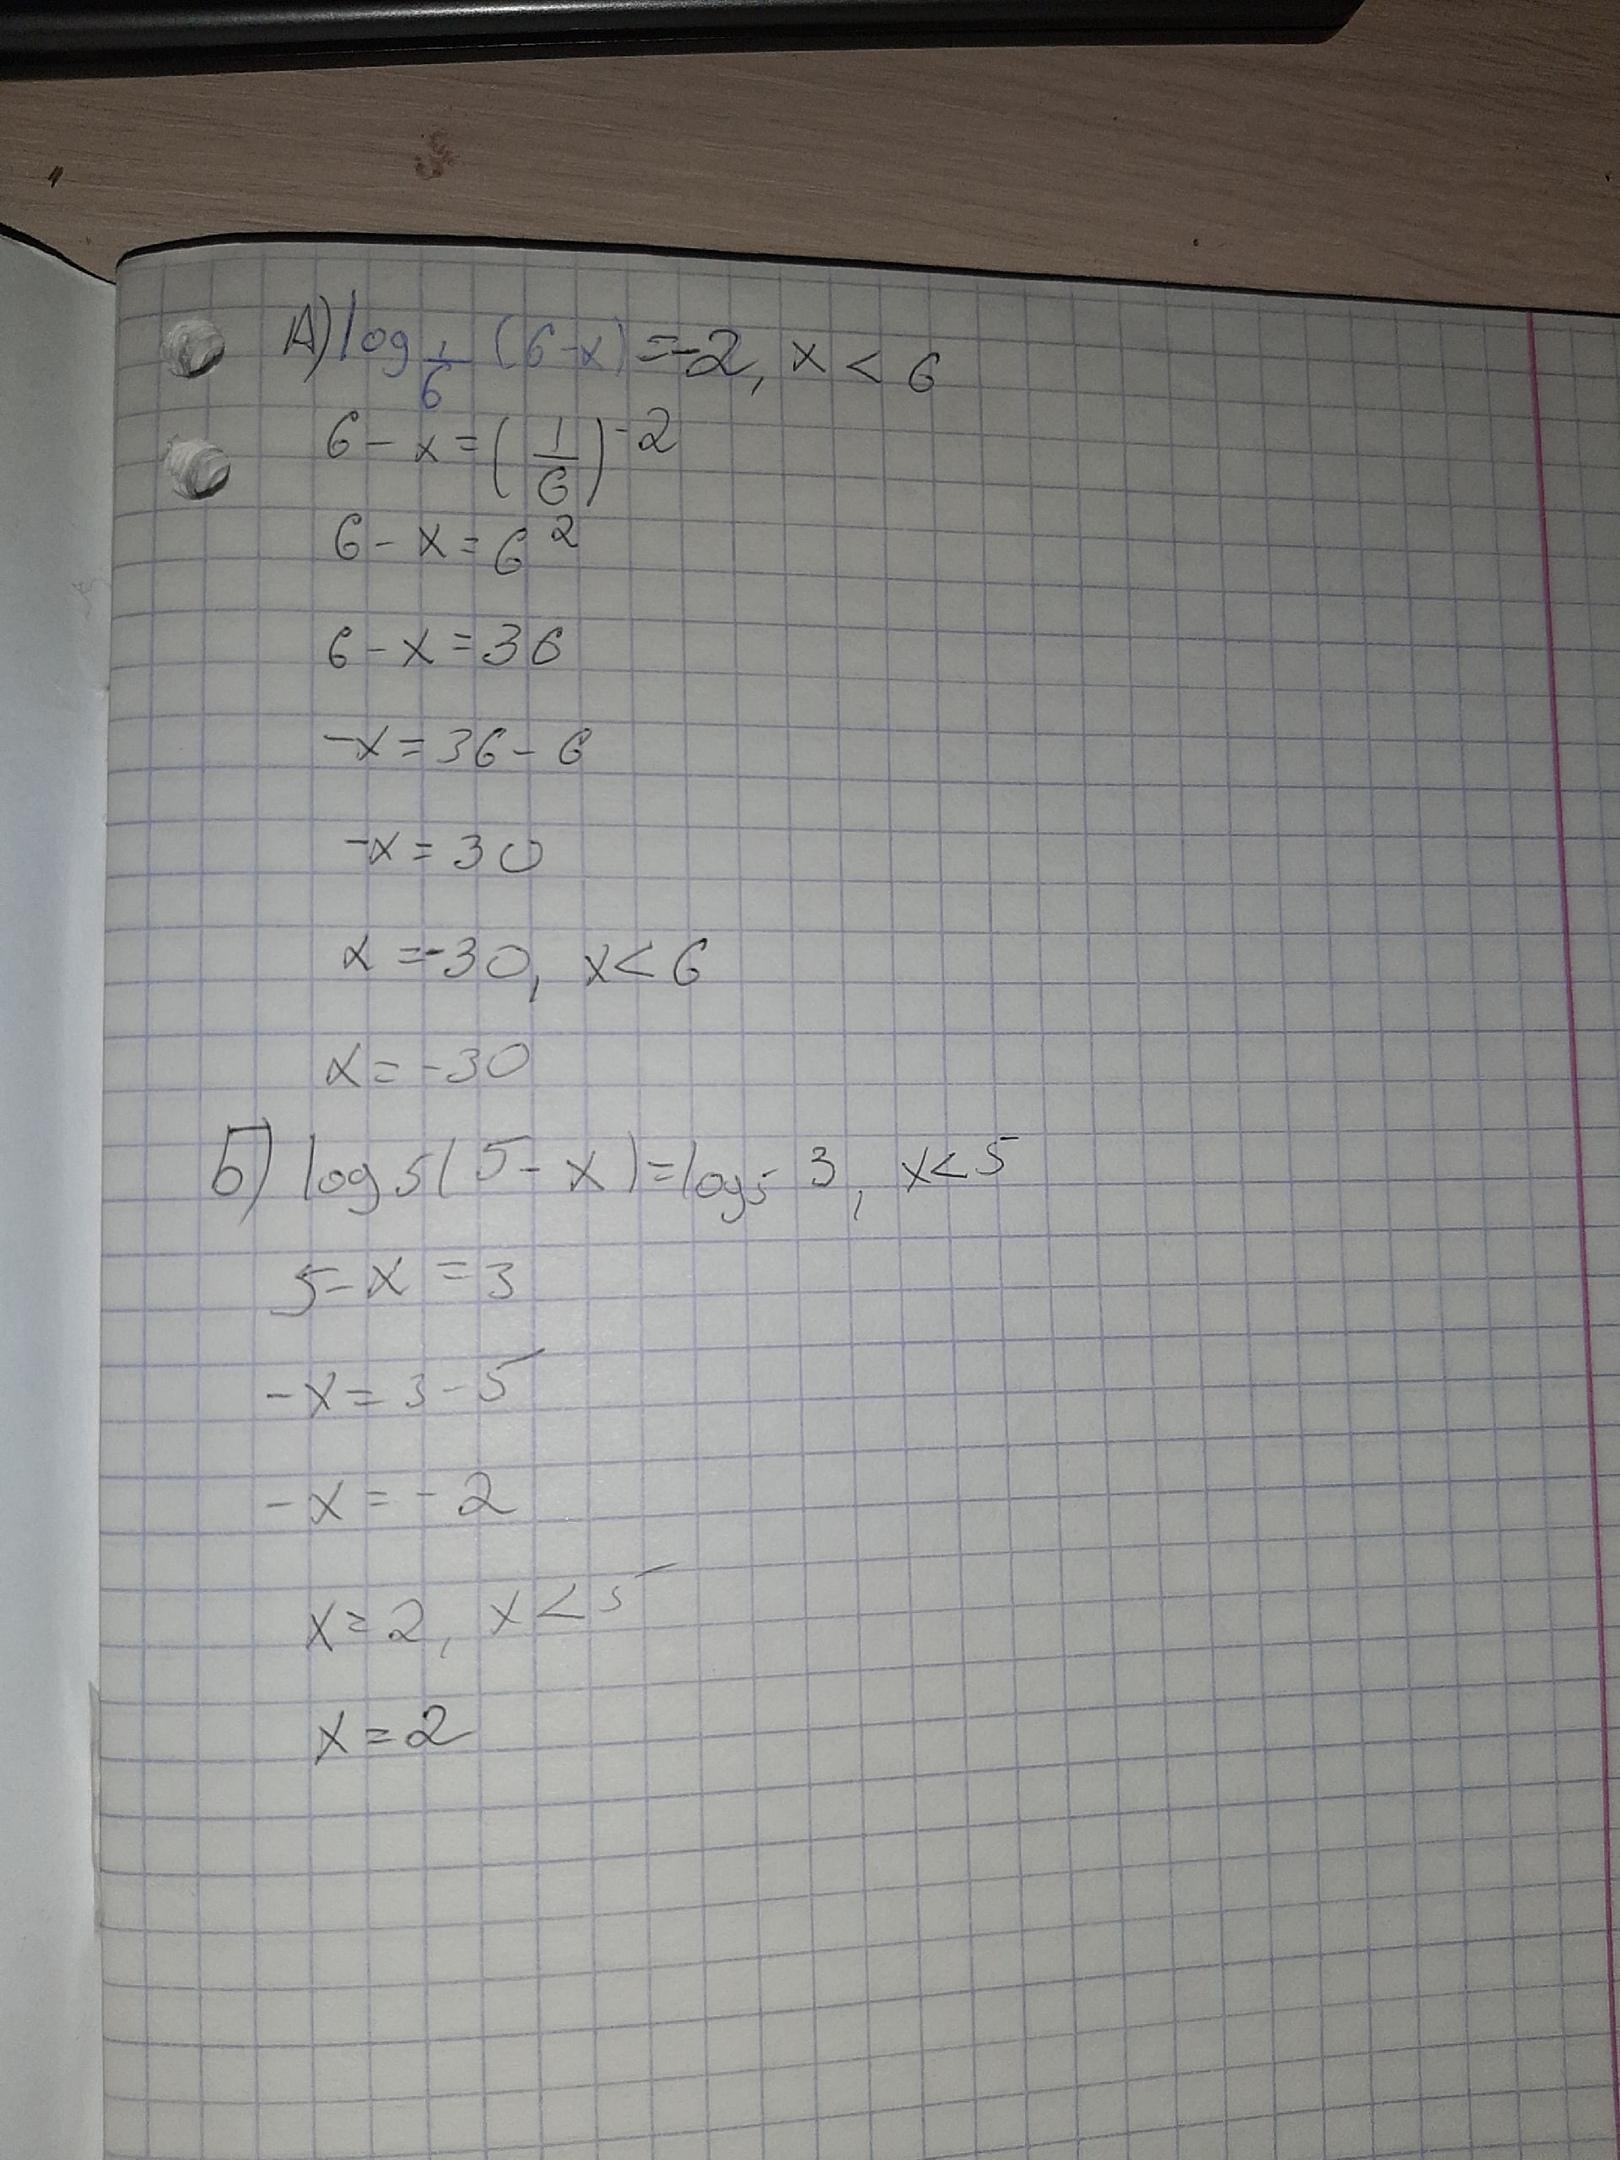 А) log 1/6 (6-x) = -2, x < 6
6 - x = (1/6)^-2
6 - x = 6^2
6 - x = 36
-x = 36 - 6
-x = 30
x = -30, x < 6
x = -30
Б) log5(5 - x) = log5 3, x < 5
5 - x = 3
-x = 3 - 5
-x = -2
x = 2, x < 5
x = 2